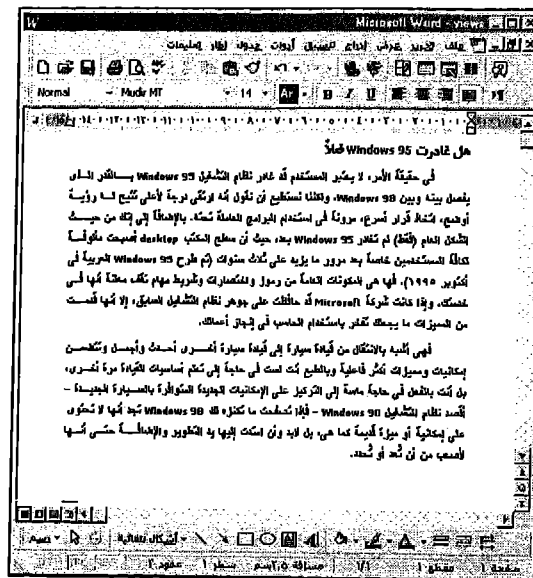 Microsoft Word - views
ملف تحرير عرض إدراج تنسيق أدوات جدول إطار تعليمات
Normal Mudir MT 14 B I U
هل غادرت Windows 95 فعلاً
في حقيقة الأمر، لا يعتبر المستخدم قد غادر نظام التشغيل Windows 95 بالقدر الذي
يفصل بينه وبين Windows 98. ولكننا نستطيع أن نقول أنه ارتقى درجة لأعلى تتيح له رؤية
أوضح، اتخاذ قرار أسرع، مرونة في استخدام البرامج العاملة تحته. بالإضافة إلى إنك من حيث
الشكل العام (فقط) لم تغادر Windows 95 بعد، حيث أن سطح المكتب desktop أصبحت مألوفة
لكافة المستخدمين خاصة بعد مرور ما يزيد على ثلاث سنوات (تم طرح Windows 95 العربية في
أكتوبر ١٩٩٥). فها هي المكونات العامة من رموز واختصارات وشريط مهام تقف معلنة أنها في
خدمتك. وإذا كانت شركة Microsoft قد حافظت على جوهر نظام التشغيل السابق، إلا أنها قدمت
من المميزات ما يجعلك تفخر باستخدام الحاسب في إنجاز أعمالك.
فهي أشبه بالانتقال من قيادة سيارة إلى قيادة سيارة أخرى أحدث وأجمل وتتضمن
إمكانيات ومميزات أكثر فاعلية وبالطبع أنت لست في حاجة إلى تعلم أساسيات القيادة مرة أخرى،
بل أنت بالفعل في حاجة ماسة إلى التركيز على الإمكانيات الجديدة المتوافرة بالسيارة الجديدة –
أقصد نظام التشغيل Windows 98 – فإذا تصفحت ما تكنزه لك Windows 98 تجد أنها لا تحتوي
على إمكانية أو ميزة قديمة كما هي، بل لابد وأن امتدت إليها يد التطوير والإضافة حتى أنها
لأصعب من أن تُعد أو تُحدد.
رسم أشكال تلقائية
صفحة ١ مقطع ١ ١/١ مسافة ٢,٥سم سطر ١ عمود ٢